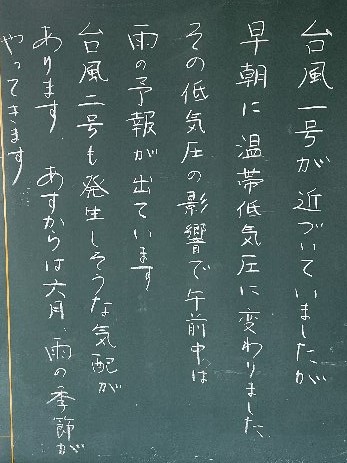 台風一号が近づいていましたが
早朝に温帯低気圧に変わりました
その低気圧の影響で午前中は
雨の予報が出ています
台風二号も発生しそうな気配が
あります。あすからは六月、雨の季節が
やってきます